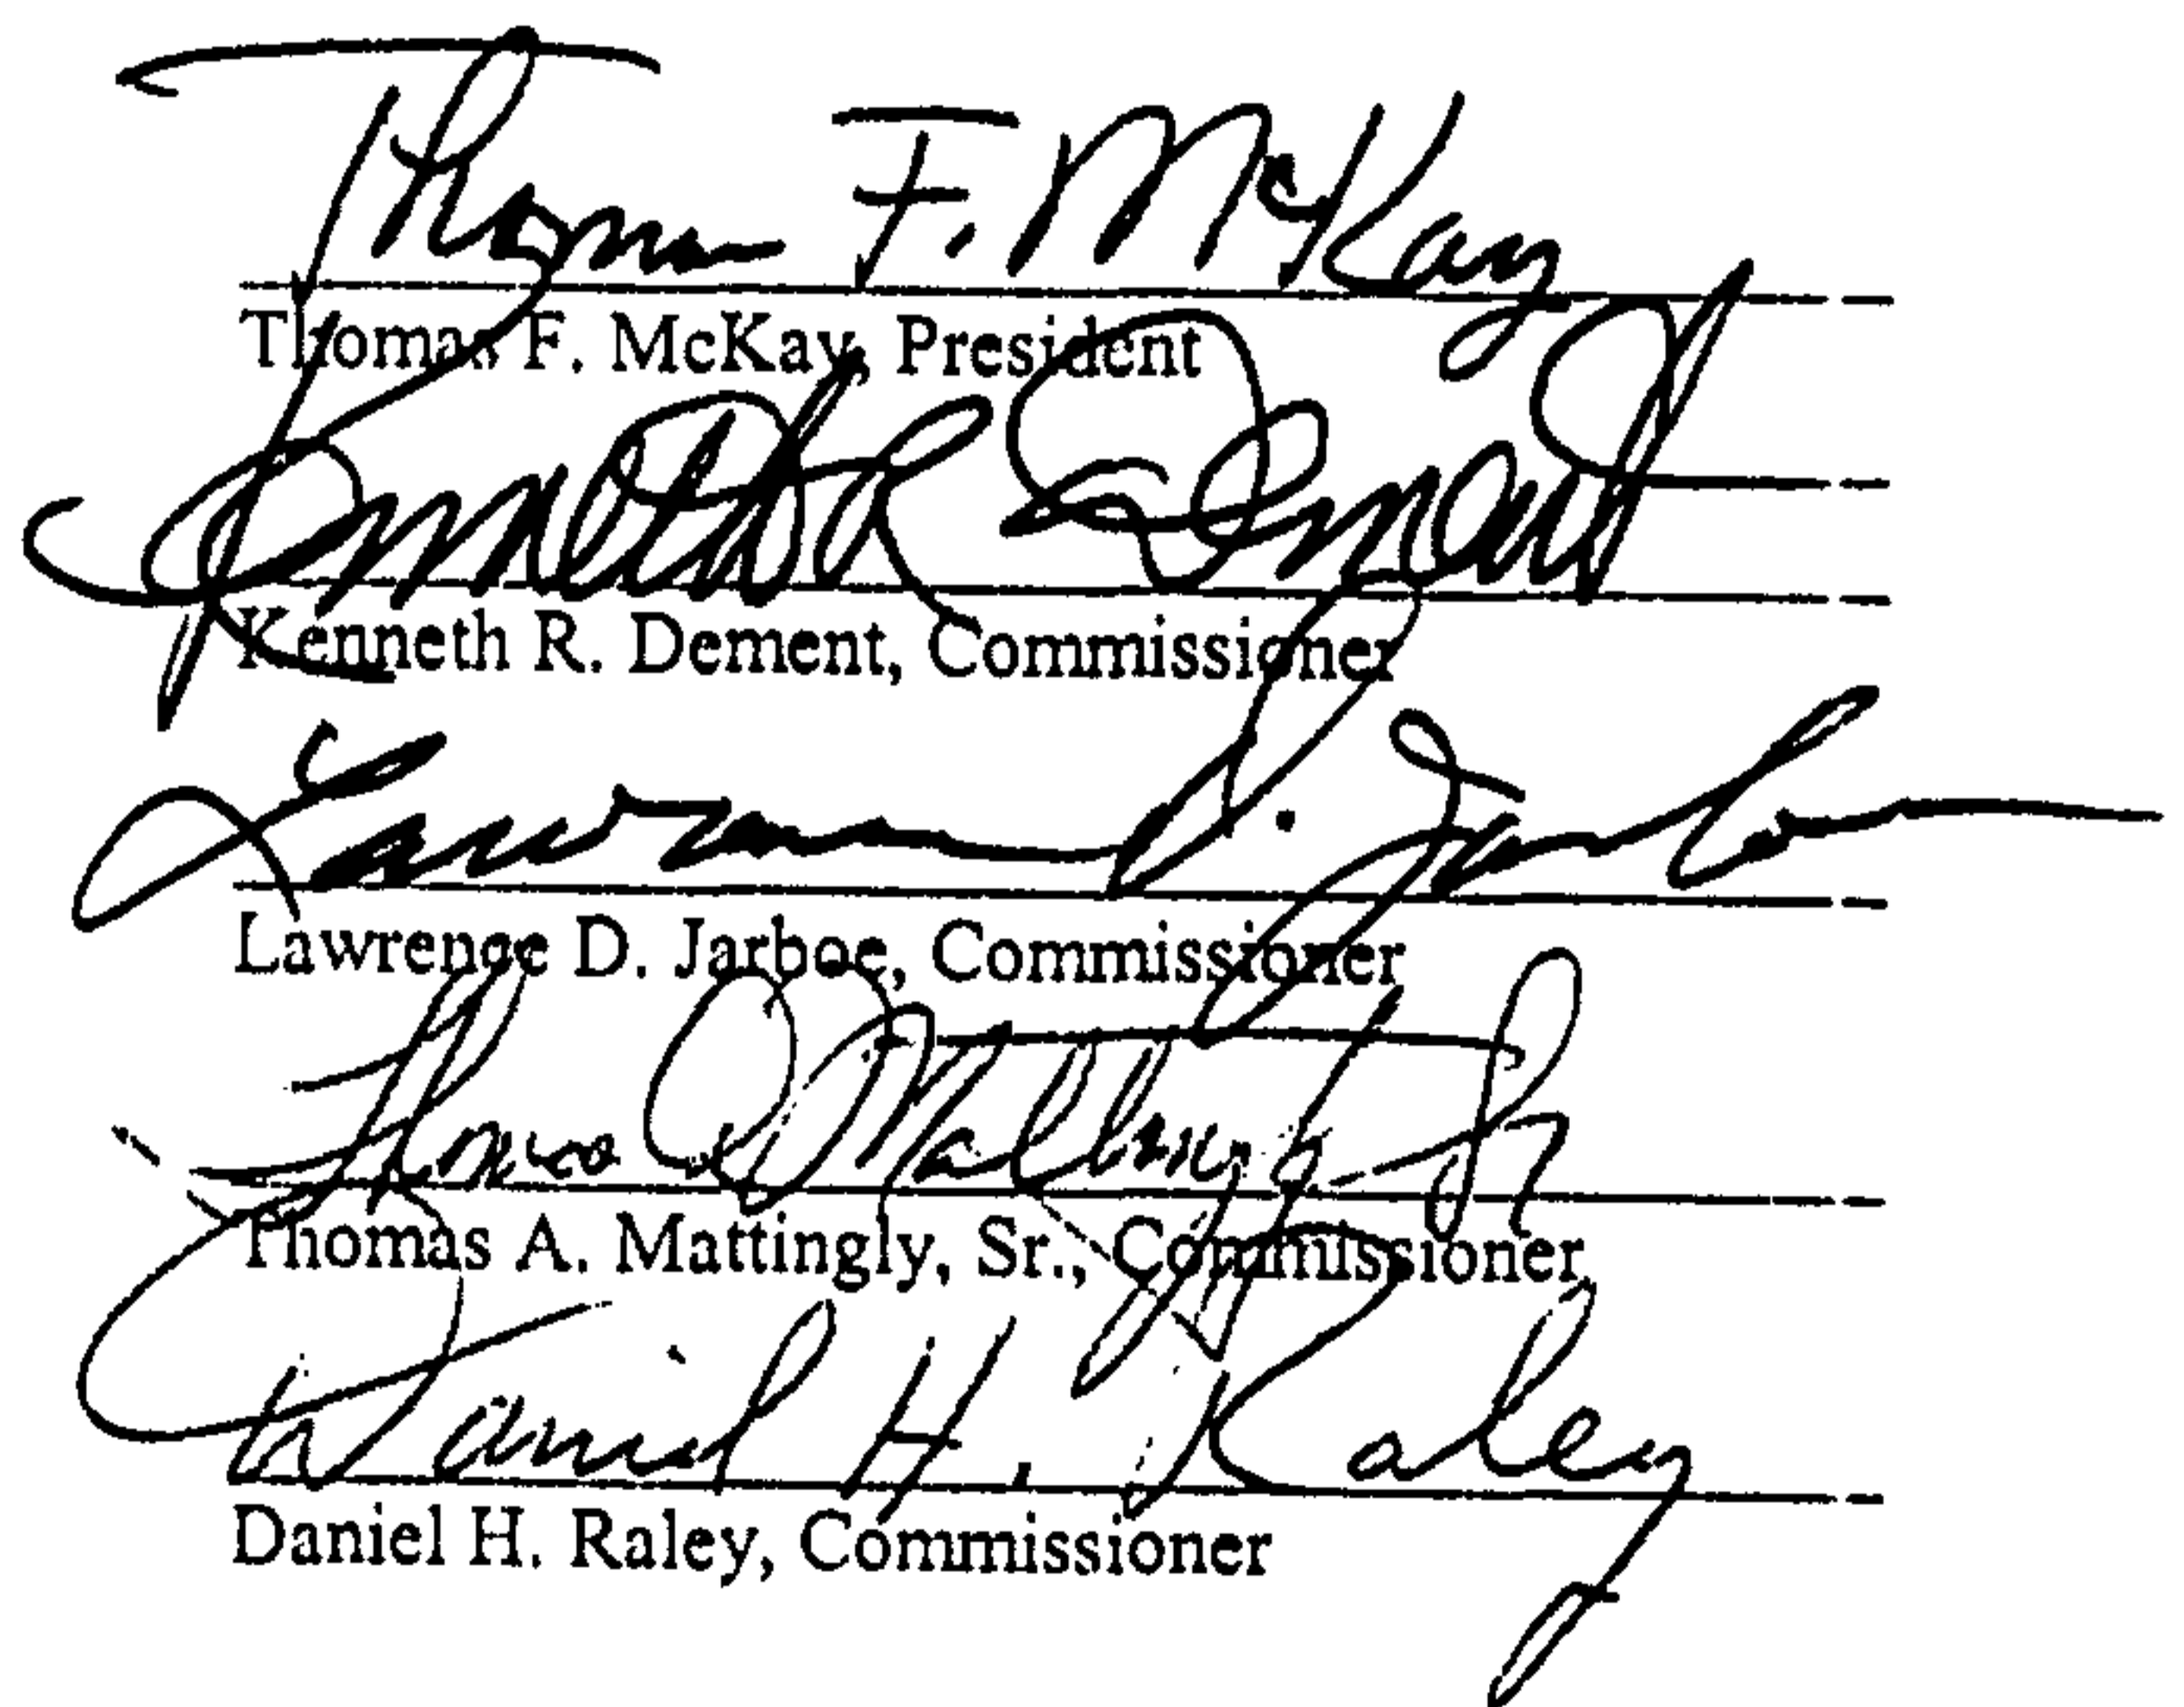 Thomas F. McKay
Thomas F. McKay, President
Kenneth Dement
Kenneth R. Dement, Commissioner
Lawrence D. Jarboe
Lawrence D. Jarboe, Commissioner
Thomas A Mattingly Sr
Thomas A. Mattingly, Sr., Commissioner
Daniel H. Raley
Daniel H. Raley, Commissioner